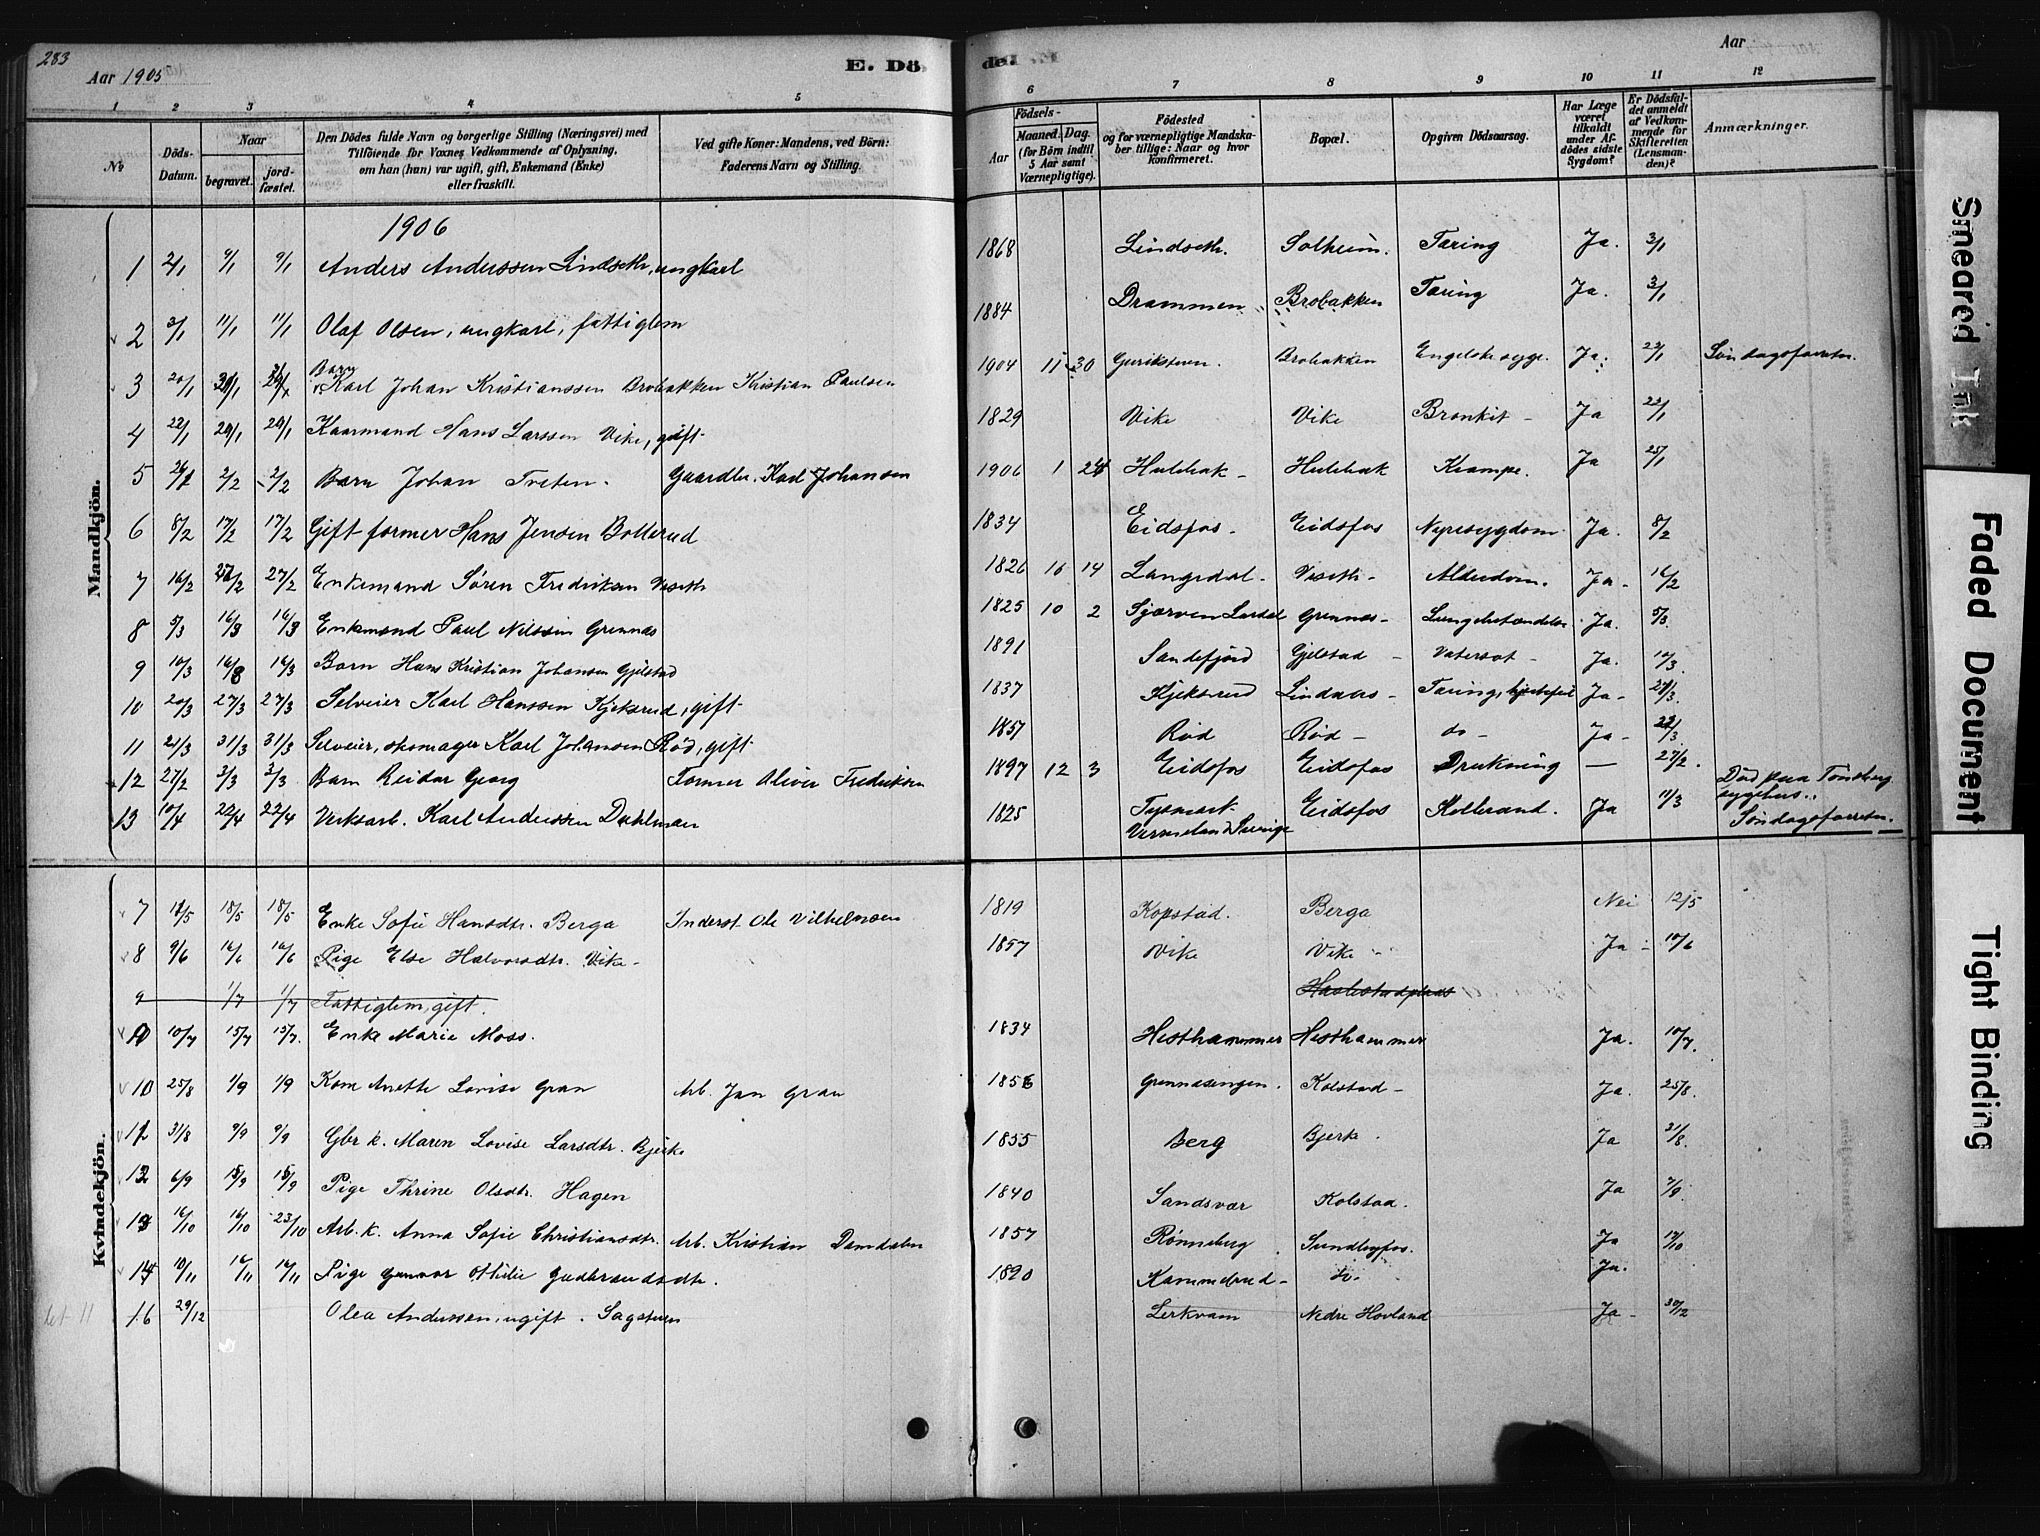 283
Aar 1905
E. Dö
de.
Aar
1 2 3 4 5 6 7 8 9 10 11 12
No
Döds-Datum.
Naar
begravet.
jord-fæstet.
Den Dödes fulde Navn og borgerlige Stilling (Næringsvei) med
Tilföiende for Voxnes Vedkommende af Oplysning,
om han (hun) var ugift, gift, Enkemand (Enke)
eller fraskilt.
Ved gifte Koner: Mandens, ved Börn:
Faderens Navn og Stilling.
Födsels-
Aar
Maaned. Dag.
(for Börn indtil
5 Aar samt
Værnepligtige).
Födested
og for værnepligtige Mandska-
ber tillige: Naar og hvor
konfirmeret.
Bopæl.
Opgiven Dödsaarsag.
Har Læge
været
tilkaldt
under Af-
dödes sidste
Sygdom?
Er Dödsfal-
det anmeldt
af Vedkom-
mende for
Skifteretten
(Lensman-
den)?
Anmærkninger.
Mandkjön.
1906
1 2/1 9/1 9/1 Anders Anderssen Lindseth, ungkarl 1868 Lindseth. Solheim. Tæring Ja. 3/1
2 3/1 11/1 11/1 Olaf Olsen, ungkarl, fattiglem 1884 Drammen Brobakken Tæring Ja. 3/1
3 20/1 Barn Karl Johan Kristianssen Brobakken Kristian Paulsen 1904 11 30 Brobakken Engelske syge. Ja. 22/1 Söndagsforretn.
4 22/1 29/1 29/1 Kaarmand Hans Larssen Vike, gift 1829 Vike Vike Bronkit Ja 22/1
5 2/2 2/2 Barn Johan Treten. Gaardbr. Karl Johansen 1906 1 24 Hulebak Hulebak Krampe. Ja 25/1
6 8/2 17/2 17/2 Gift former Hans Jensen Bollerud 1834 Eidsfos Eidsfos Nyresygdom Ja. 8/2
7 16/2 27/2 27/2 Enkemand Sören Fredriksen Viseth 1826 10 14 Langedal Viseth Alderdom. Ja 16/2
8 5/3 16/3 16/3 Enkemand Paul Nilssen Grennes 1825 10 2 Sjærven Lardal Grennes Lungebetændelse Ja. 5/3.
9 10/3 16/3 16/3 Barn Hans Kristian Johansen Gjelstad 1891 Sandefjord Gjelstad Vatersot Ja. 10/3.
10 20/3 27/3 27/3 Selveier Karl Hanssen Kjeksrud, gift 1837 Kjeksrud Lindaas Tæring, hjertefeil Ja 21/3.
11 21/3 31/3 31/3 Selveier, skomager Karl Johansen Röd, gift 1857 Röd Röd do Ja 22/3
12 27/2 3/3 3/3 Barn Reidar Georg Former Oliver Fredriksen 1897 12 3 Eidsfos Eidsfos Drukning — 27/2. Död paa Tönsberg sygehus.
13 10/4 22/4 22/4 Verksarb. Karl Anderssen Dahlman 1825 Vermeland Sverige Eidsfos Kolbrand. Ja 11/3 Söndagsforretn.
Kvindekjön.
7 11/5 18/5 18/5 Enke Sofie Hansdtr. Berga Inderst Ole Vilhelmsen 1819 Kopstad. Berga Nei 12/5
8 9/6 16/6 16/6 Pige Else Halvorsdtr. Vike 1857 Vike Vike Ja 10/6
9 1/7 1/7 Fattiglem, gift. Haslestadplads
10 10/7 15/7 15/7. Enke Marie Moss. 1834 Hesthammer Hesthammer Ja. 10/7.
10 25/8 1/9 1/9 Kone Anette Lovise Gran Arb. Jan Gran 1856 Grennesengen. Kolstad Ja. 25/8.
12 31/8 9/9 9/9 Gbr. k. Maren Lovise Larsdtr. Bjerke 1855 Berg Bjerk. Ja 31/8.
13 6/9 15/9 15/9 Pige Thrine Olsdtr. Hagen 1840 Sandsvær Kolstad. Ja 7/9.
16/10 16/10 23/10 Arb. k. Anna Sofie Christiansdtr. Arb. Kristian Damdalen 1857 Rönneberg Sundbyfos. Ja 17/10
14 10/11 16/11 16/11 Pige Gunvor Othilie Gudbrandsdtr. 1890 Kammerud do. Ja.
16 29/12 Olea Anderssen, ugift. Sagstuen Lerkvam Nedre Hovland Ja 30/12
let 11
Smeared Ink
Faded Document
Tight Binding